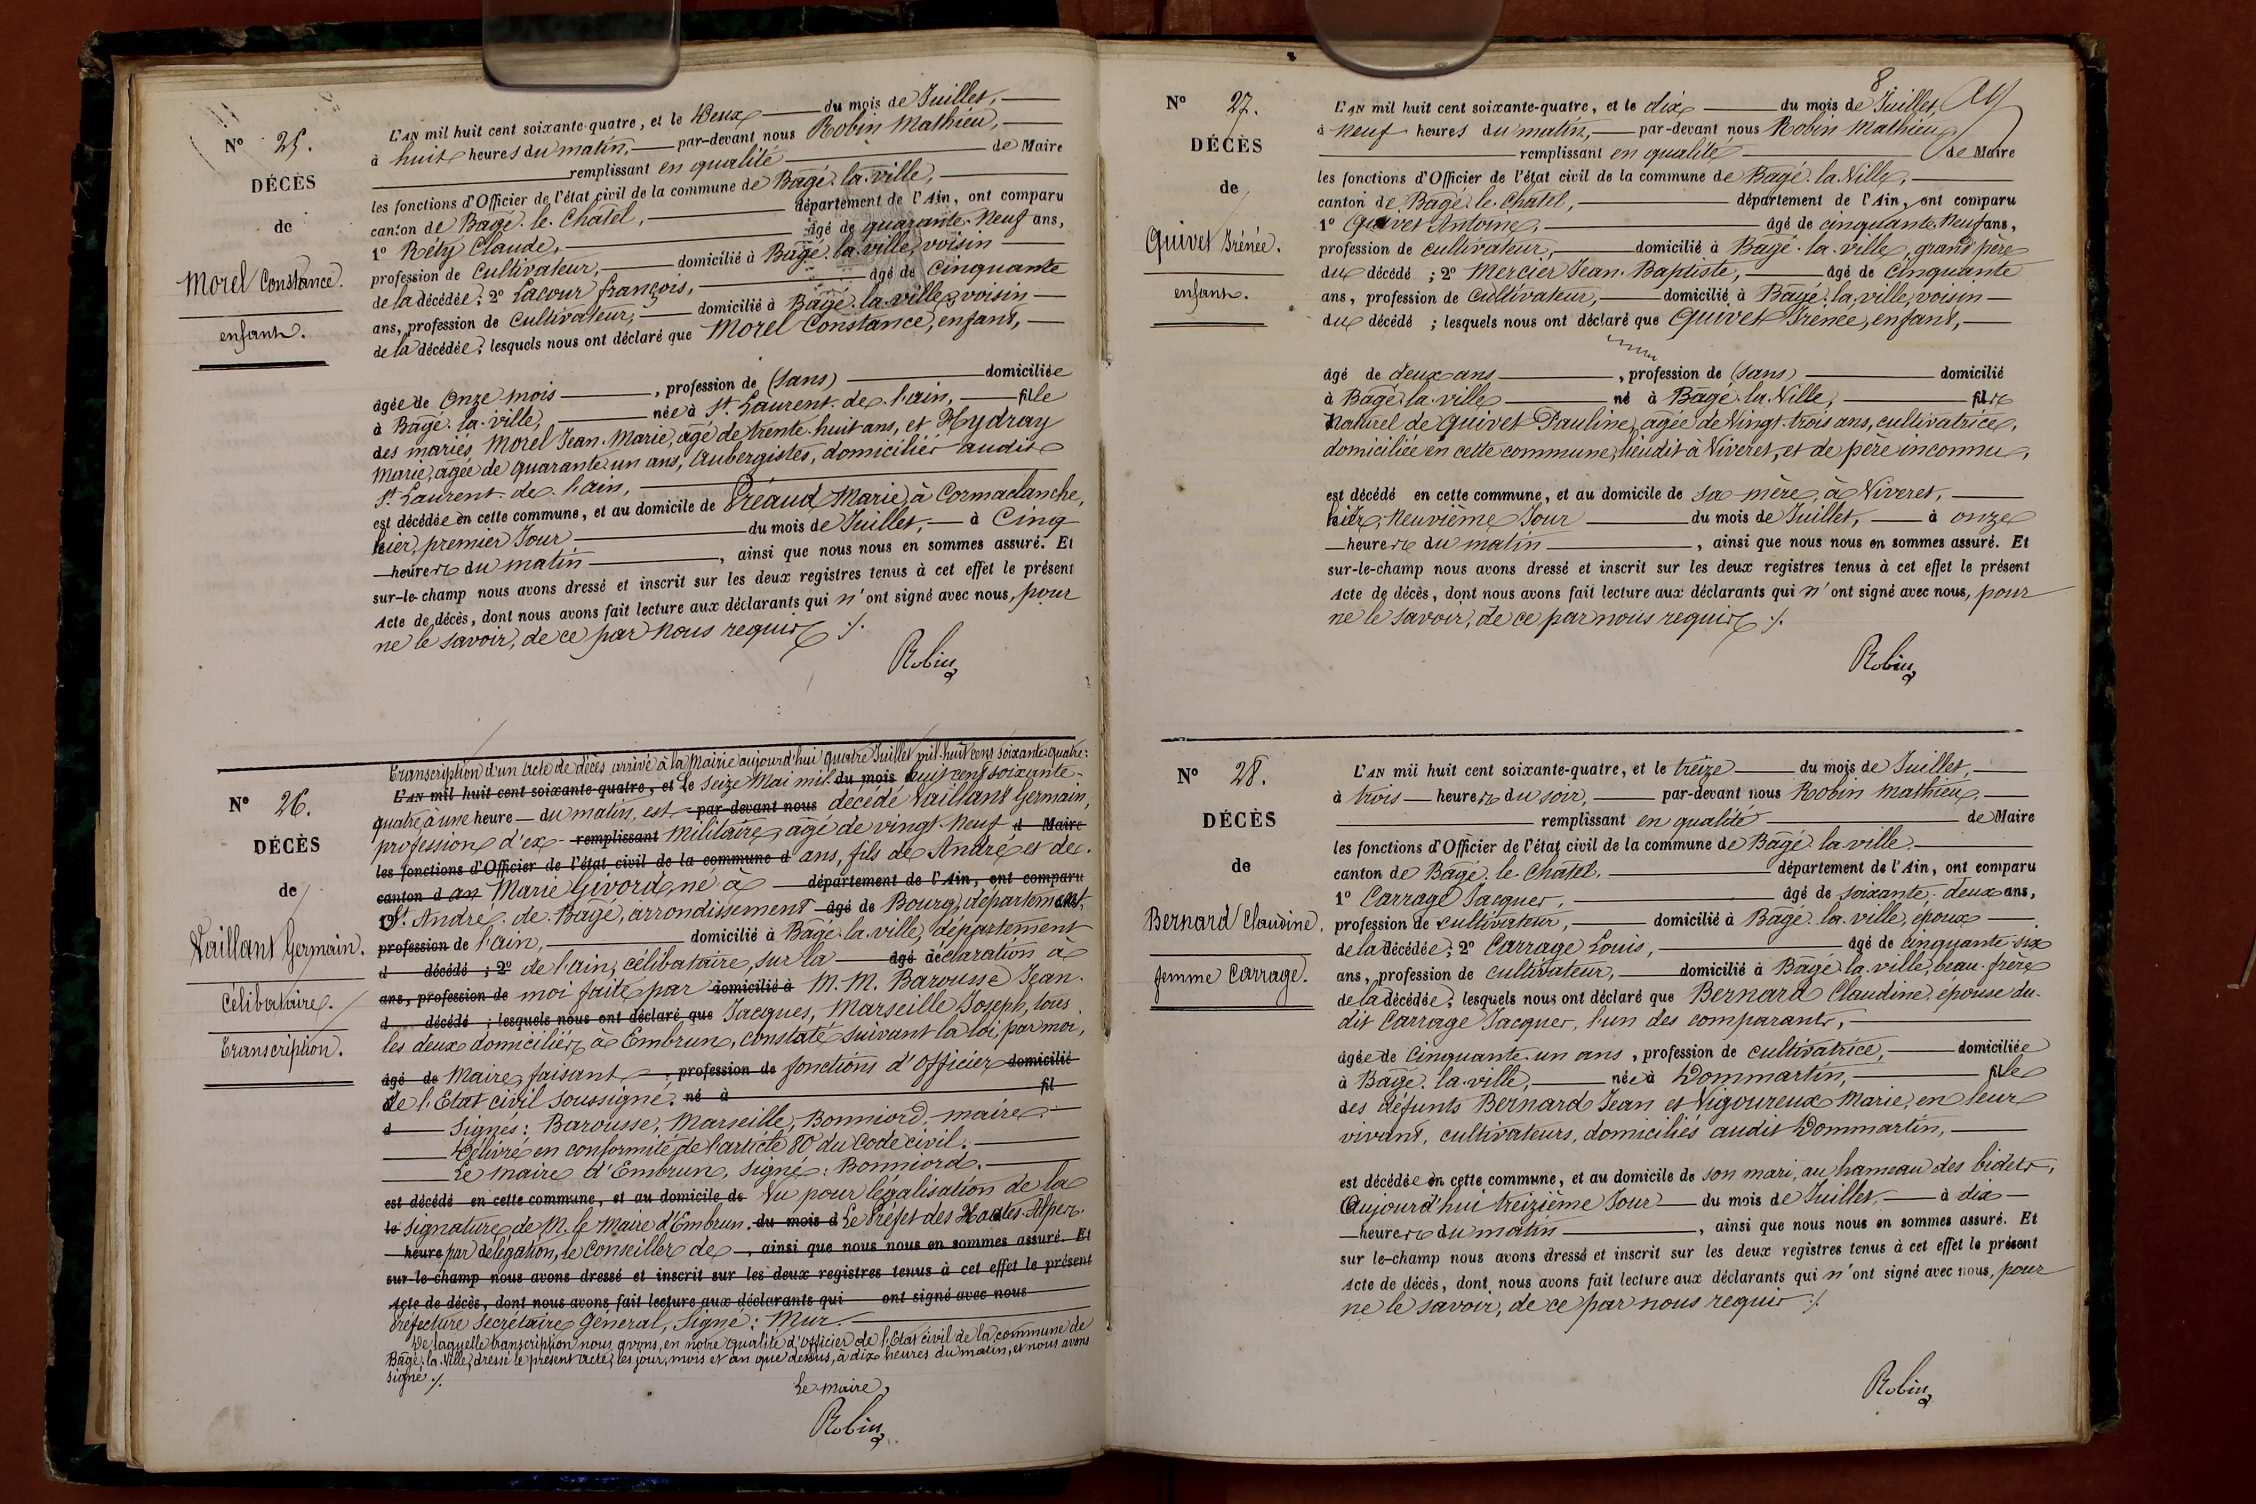 N° 25.
DÉCÈS
de
Morel Constance.
enfant.
L'AN mil huit cent soixante-quatre, et le Deux du mois de Juillet,
à huit heures du matin, par-devant nous Robin Mathieu,
remplissant en qualité de Maire
les fonctions d'Officier de l'état civil de la commune de Bagé-la-ville,
canton de Bagé-le-Chatel, département de l'Ain, ont comparu
1° Réty Claude, âgé de quarante-neuf ans,
profession de Cultivateur, domicilié à Bagé-la-ville, voisin
de la décédée; 2° Lacour françois, âgé de Cinquante
ans, profession de Cultivateur, domicilié à Bagé-la-ville, voisin
de la décédée; lesquels nous ont déclaré que Morel Constance, enfant,
âgée de Onze mois, profession de (Sans) domiciliée
à Bagé-la-ville, née à St Laurent-de-l'ain, fille
des mariés Morel Jean-Marie, âgé de trente-huit ans, et Hydray
Marie, âgée de quarante-un ans, Aubergistes, domiciliés audit
St Laurent-de-l'ain,
est décédée en cette commune, et au domicile de Préaud Marie, à Cormaclanche,
hier, premier Jour du mois de Juillet, à Cinq
heures du matin, ainsi que nous nous en sommes assuré. Et
sur-le-champ nous avons dressé et inscrit sur les deux registres tenus à cet effet le présent
Acte de décès, dont nous avons fait lecture aux déclarants qui n'ont signé avec nous, pour
ne le savoir, de ce par nous requis ./.
Robin
N° 26.
DÉCÈS
de
Vaillant Germain.
Célibataire.
Transcription.
Transcription d'un acte de décès arrivé à la Mairie aujourd'hui quatre Juillet mil-huit cent soixante-quatre:
L'AN mil huit cent soixante-quatre, et Le Seize Mai mil du mois huit cent soixante-
quatre, à une heure du matin, est par-devant nous décédé Vaillant Germain,
profession d'ex- remplissant militaire, âgé de vingt-neuf d Maire
les fonctions d'Officier de l'état civil de la commune d ans, fils de André et de
canton d Marie Givord, né à département de l'Ain, ont comparu
St. André-de-Bagé, arrondissement âgé de Bourg, département
profession de l'ain, domicilié à Bagé-la-ville, département
d décédé; 2° de l'ain, célibataire, sur la âgé déclaration à
ans, profession de moi faite par domicilié à M.M. Barousse Jean-
d décédé; lesquels nous ont déclaré que Jacques, Marseille Joseph, tous
les deux domiciliés à Embrun, constaté suivant la loi, par moi,
âgé de Maire, faisant, profession de fonctions d'Officier domicilié
de l'Etat civil soussigné. né à fil
d Signés: Barousse, Marseille, Bonniord, maire.
Délivré en conformité de l'article 80 du Code civil.
Le maire d'Embrun, signé: Bonniord.
est décédé en cette commune, et au domicile de Vu pour légalisation de la
le signature de M. le Maire d'Embrun. du mois d Le Préfet des Hautes-Alpes.
heure par délégation, le Conseiller de, ainsi que nous nous en sommes assuré. Et
sur-le-champ nous avons dressé et inscrit sur les deux registres tenus à cet effet le présent
Acte de décès, dont nous avons fait lecture aux déclarants qui ont signé avec nous
Préfecture Secrétaire Général, Signé: Mur.
De laquelle transcription nous avons, en notre qualité d'officier de l'Etat civil de la commune de
Bagé-la-Ville, dressé le présent acte, les jour, mois et an que dessus, à dix heures du matin, et nous avons
signé ./.
Le Maire,
Robin
8
N° 27.
DÉCÈS
de
Quivet Irénée.
enfant.
L'AN mil huit cent soixante-quatre, et le dix du mois de Juillet,
à neuf heures du matin, par-devant nous Robin Mathieu,
remplissant en qualité de Maire
les fonctions d'Officier de l'état civil de la commune de Bagé-la-Ville,
canton de Bagé-le-Chatel, département de l'Ain, ont comparu
1° Quivet Antoine, âgé de cinquante-neuf ans,
profession de cultivateur, domicilié à Bagé-la-ville, grand père
du décédé; 2° Mercier Jean-Baptiste, âgé de Cinquante
ans, profession de Cultivateur, domicilié à Bagé-la-ville, voisin
du décédé; lesquels nous ont déclaré que Quivet Irénée, enfant,
âgé de deux ans, profession de (Sans) domicilié
à Bagé-la-ville né à Bagé-la-Ville, fils
naturel de Quivet Pauline, agée de Vingt-trois ans, cultivatrice,
domiciliée en cette commune, lieudit à Viveret, et de père inconnu,
est décédé en cette commune, et au domicile de sa mère, à Viveret,
hier, neuvième Jour du mois de Juillet, à onze
heures du matin, ainsi que nous nous en sommes assuré. Et
sur-le-champ nous avons dressé et inscrit sur les deux registres tenus à cet effet le présent
Acte de décès, dont nous avons fait lecture aux déclarants qui n'ont signé avec nous, pour
ne le savoir, de ce par nous requis ./.
Robin
N° 28.
DÉCÈS
de
Bernard Claudine.
femme Carrage.
L'AN mil huit cent soixante-quatre, et le treize du mois de Juillet,
à trois heures du soir, par-devant nous Robin Mathieu,
remplissant en qualité de Maire
les fonctions d'Officier de l'état civil de la commune de Bagé-la-ville,
canton de Bagé-le-Chatel, département de l'Ain, ont comparu
1° Carrage Jacques, âgé de soixante-deux ans,
profession de cultivateur, domicilié à Bagé-la-ville, époux
de la décédée; 2° Carrage Louis, âgé de cinquante-six
ans, profession de cultivateur, domicilié à Bagé-la-ville, beau-frère
de la décédée; lesquels nous ont déclaré que Bernard Claudine, epouse du-
dit Carrage Jacques, l'un des comparants,
âgée de Cinquante-un ans, profession de cultivatrice, domiciliée
à Bagé-la-ville, née à Dommartin, fille
des défunts Bernard Jean et Vigoureux Marie, en leur
vivant, cultivateurs, domiciliés audit Dommartin,
est décédée en cette commune, et au domicile de son mari, au hameau des bidets,
Aujourd'hui treizième Jour du mois de Juillet, à dix
heures du matin, ainsi que nous nous en sommes assuré. Et
sur-le-champ nous avons dressé et inscrit sur les deux registres tenus à cet effet le présent
Acte de décès, dont nous avons fait lecture aux déclarants qui n'ont signé avec nous, pour
ne le savoir, de ce par nous requis ./.
Robin